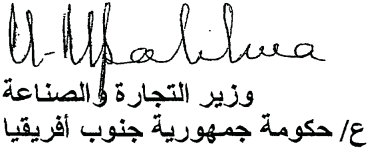 وزير التجارة والصناعة
ع/ حكومة جمهورية جنوب أفريقيا